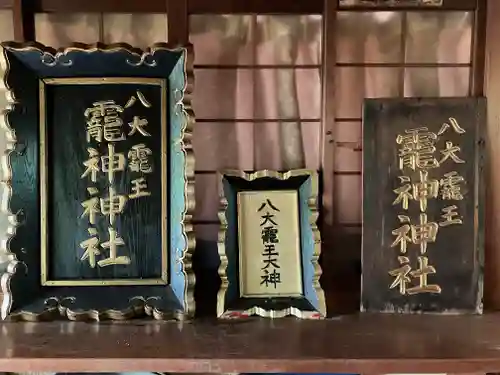 八大靇王
龗神神社
八大龗王大神
八大靇王
龗神神社